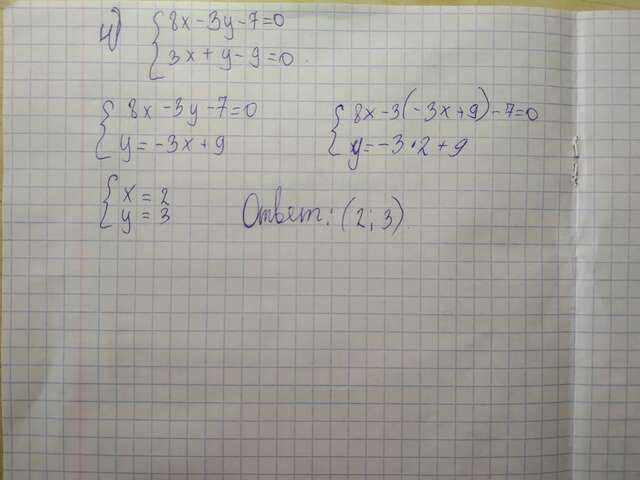 4) 8x-3y-7=0
3x+y-9=0
8x-3y-7=0
y=-3x+9
8x-3(-3x+9)-7=0
y=-3·2+9
x=2
y=3
Ответ: (2;3).